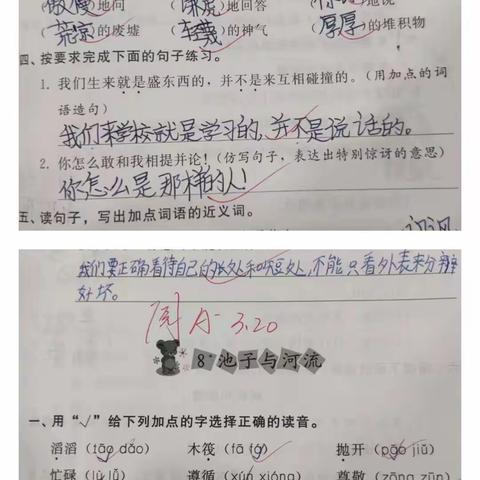 (傲慢)地问 ( )地回答 ( )地说
(荒凉)的废墟 ( )的神气 (厚厚)的堆积物
四、按要求完成下面的句子练习。
1. 我们生来就是盛东西的，并不是来互相碰撞的。(用加点的词
语造句)
我们来学校就是学习的，并不是说话的。
2. 你怎么敢和我相提并论！(仿写句子，表达出特别惊讶的意思)
你怎么是那样的人！
五、读句子，写出加点词语的近义词。
我们要正确看待自己的长处和短处，不能只看外表来分辨
好坏。
阅 A- 3.20
8* 池子与河流
一、用“√”给下列加点的字选择正确的读音。
滔滔 (tāo dáo) 木筏 (fā fá) 抛开 (pāo jiū)
忙碌 (lù lǜ) 遵循 (xún xióng) 尊敬 (zōng zūn)